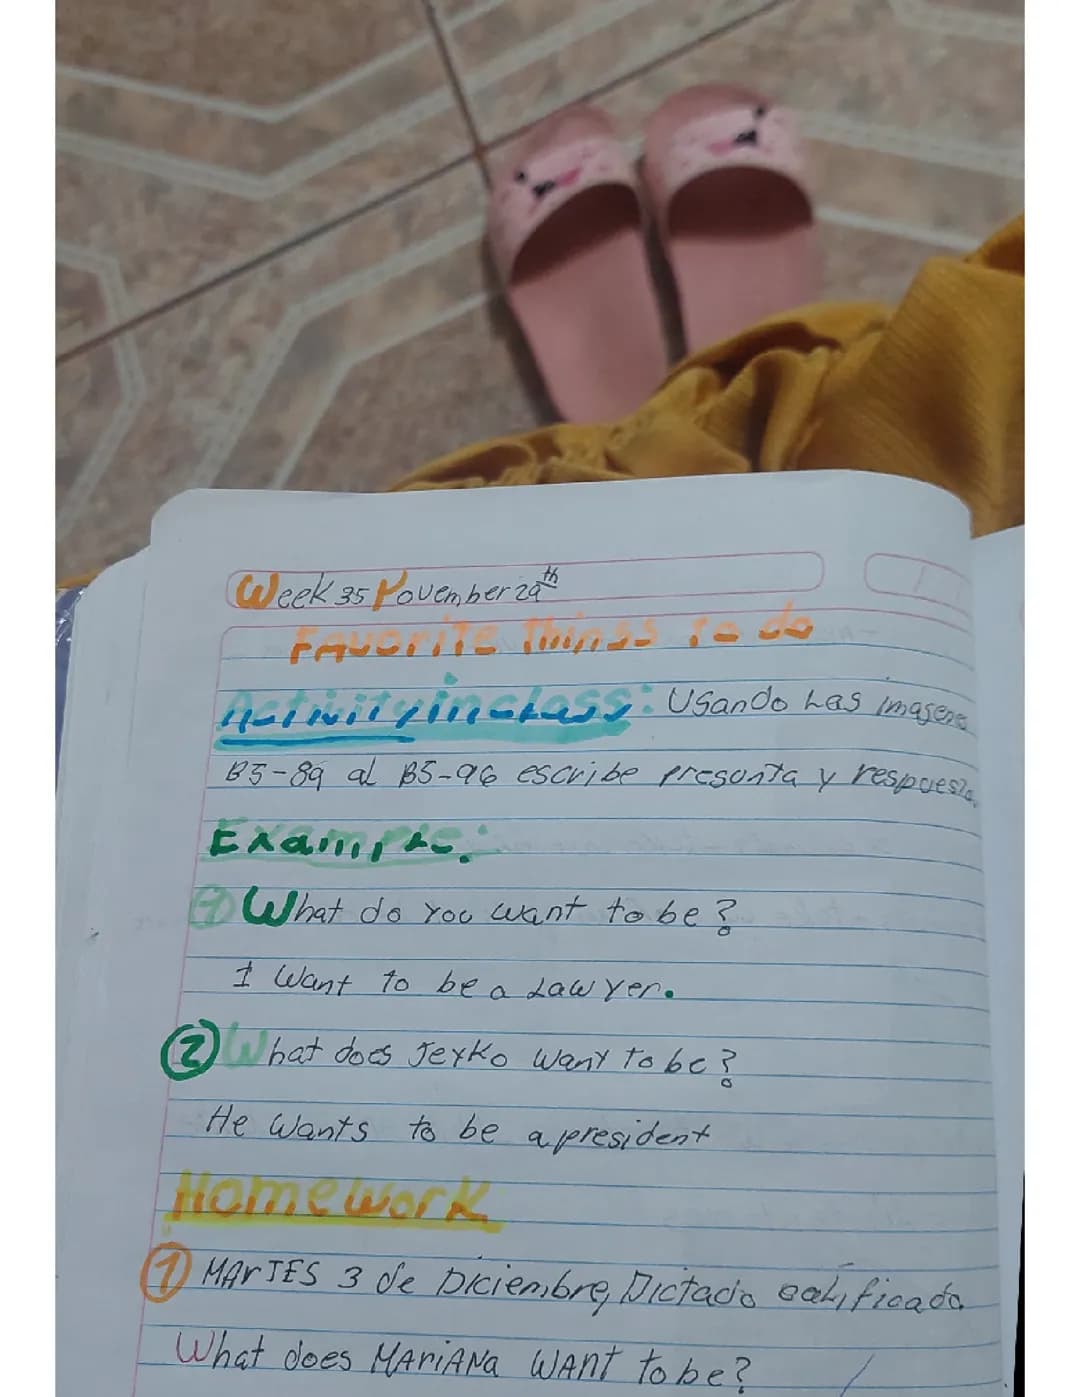 Week 35 November 29th
Favorite Things to do
Activity in class: Usando Las imagenes
B5-89 al B5-96 escribe pregunta y respuesta.
Example:
1 What do you want to be?
I want to be a Lawyer.
2 What does Jeyko want to be?
He wants to be a president
Homework
1 MArTES 3 de Diciembre, Dictado calificado
What does MAriANa WANT to be?